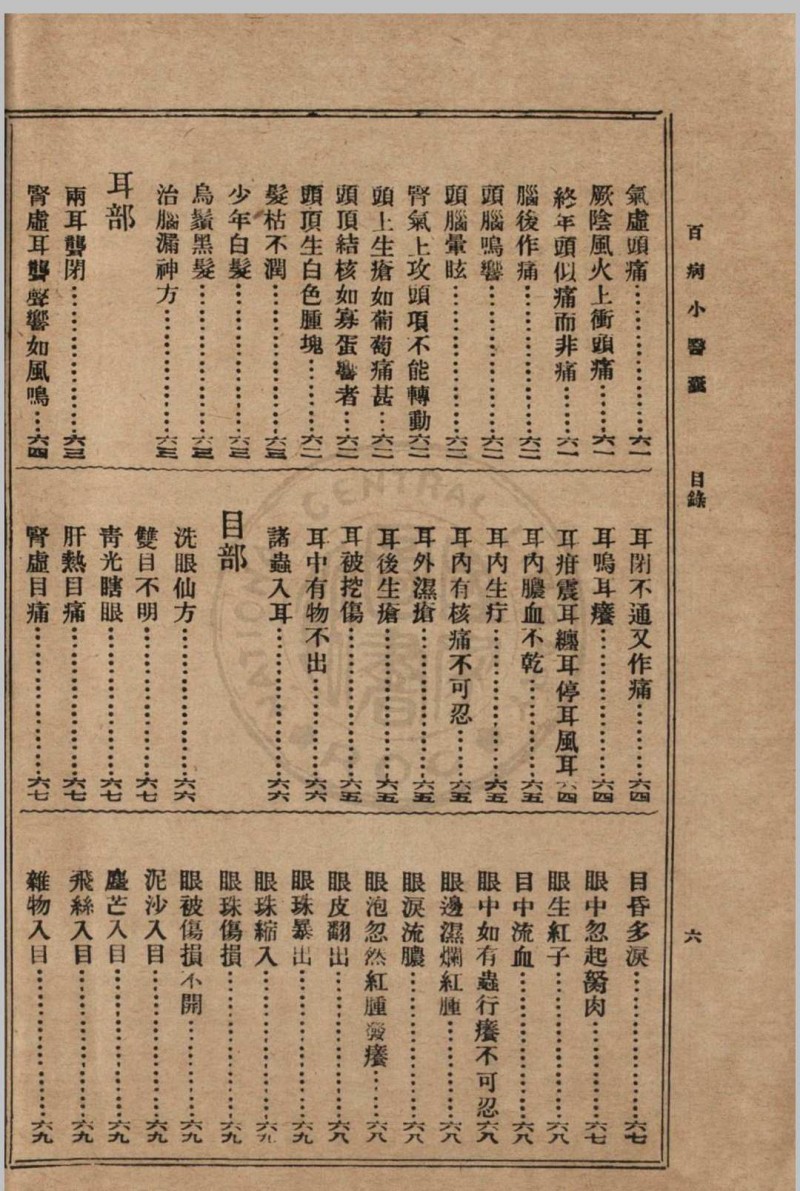 百病小醫囊 目錄 六
氣虛頭痛…………六一
厥陰風火上衝頭痛……六一
終年頭似痛而非痛……六一
腦後作痛…………六二
頭腦鳴響…………六二
頭腦暈眩…………六二
腎氣上攻頭項不能轉動六二
頭上生瘡如葡萄痛甚…六二
頭頂結核如寡蛋響者…六二
頭頂生白色腫塊………六二
髮枯不潤…………六三
少年白髮…………六三
烏鬚黑髮…………六三
治腦漏神方…………六三
耳部
兩耳聾閉…………六三
腎虛耳聾聲響如風鳴…六四
耳閉不通又作痛………六四
耳鳴耳癢…………六四
耳疳震耳纏耳停耳風耳六四
耳內膿血不乾…………六五
耳內生疔…………六五
耳內有核痛不可忍……六五
耳外濕瘡…………六五
耳後生瘡…………六五
耳被挖傷…………六五
耳中有物不出…………六六
諸蟲入耳…………六六
目部
洗眼仙方…………六六
雙目不明…………六七
靑光瞎眼…………六七
肝熱目痛…………六七
腎虛目痛…………六七
目昏多淚…………六七
眼中忽起努肉…………六七
眼生紅子…………六八
目中流血…………六八
眼中如有蟲行癢不可忍六八
眼邊濕爛紅腫…………六八
眼淚流膿…………六八
眼泡忽然紅腫發癢……六八
眼皮翻出…………六八
眼珠暴出…………六九
眼珠縮入…………六九
眼珠傷損…………六九
眼被傷損不開…………六九
泥沙入目…………六九
塵芒入目…………六九
飛絲入目…………六九
雜物入目…………六九
CENTRAL